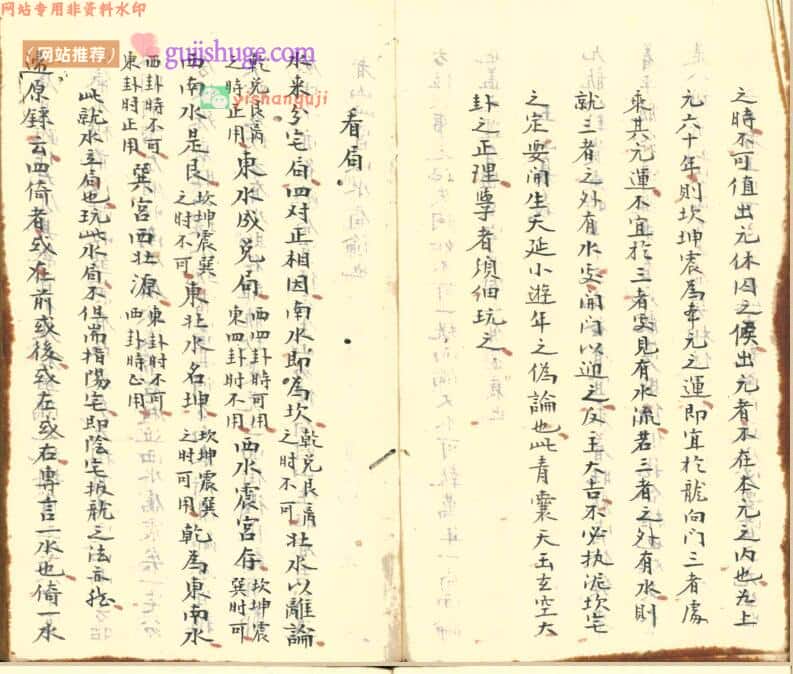 网站专用非资料水印
(网站推荐)
gujishuge.com
yishanguji
之時不可值出元休囚之候出元者不在本元之内也如上
元六十年則坎坤震為本元之運即宜於龍向门三者處
乘其元運不宜於三者處見有水流若三者之外有水則
就三者之外有水處開门以迎之反主大吉不必执泥坎宅
之定要開生天延小遊年之偽論也此青囊天玉玄空大
卦之正理學者須細玩之
看局
水来分宅局四对正相因南水即為坎乾兑艮离之時不可北水以離論
乾兑艮离之時正用東水成兑局西四卦時可用東四卦时不用西水震宫存坎坤震巽时可
西南水是艮坎坤震巽之时不可東北水名坤坎坤震巽之时可用乾為東南水
西卦时不可東卦时正用巽宫西北源東卦时不可西卦时正用
此就水立局也玩此水局不但耑指陽宅即陰宅扳龍之法亦然
還原錄云四倚者或在前或後或在左或右專言一水也倚一水